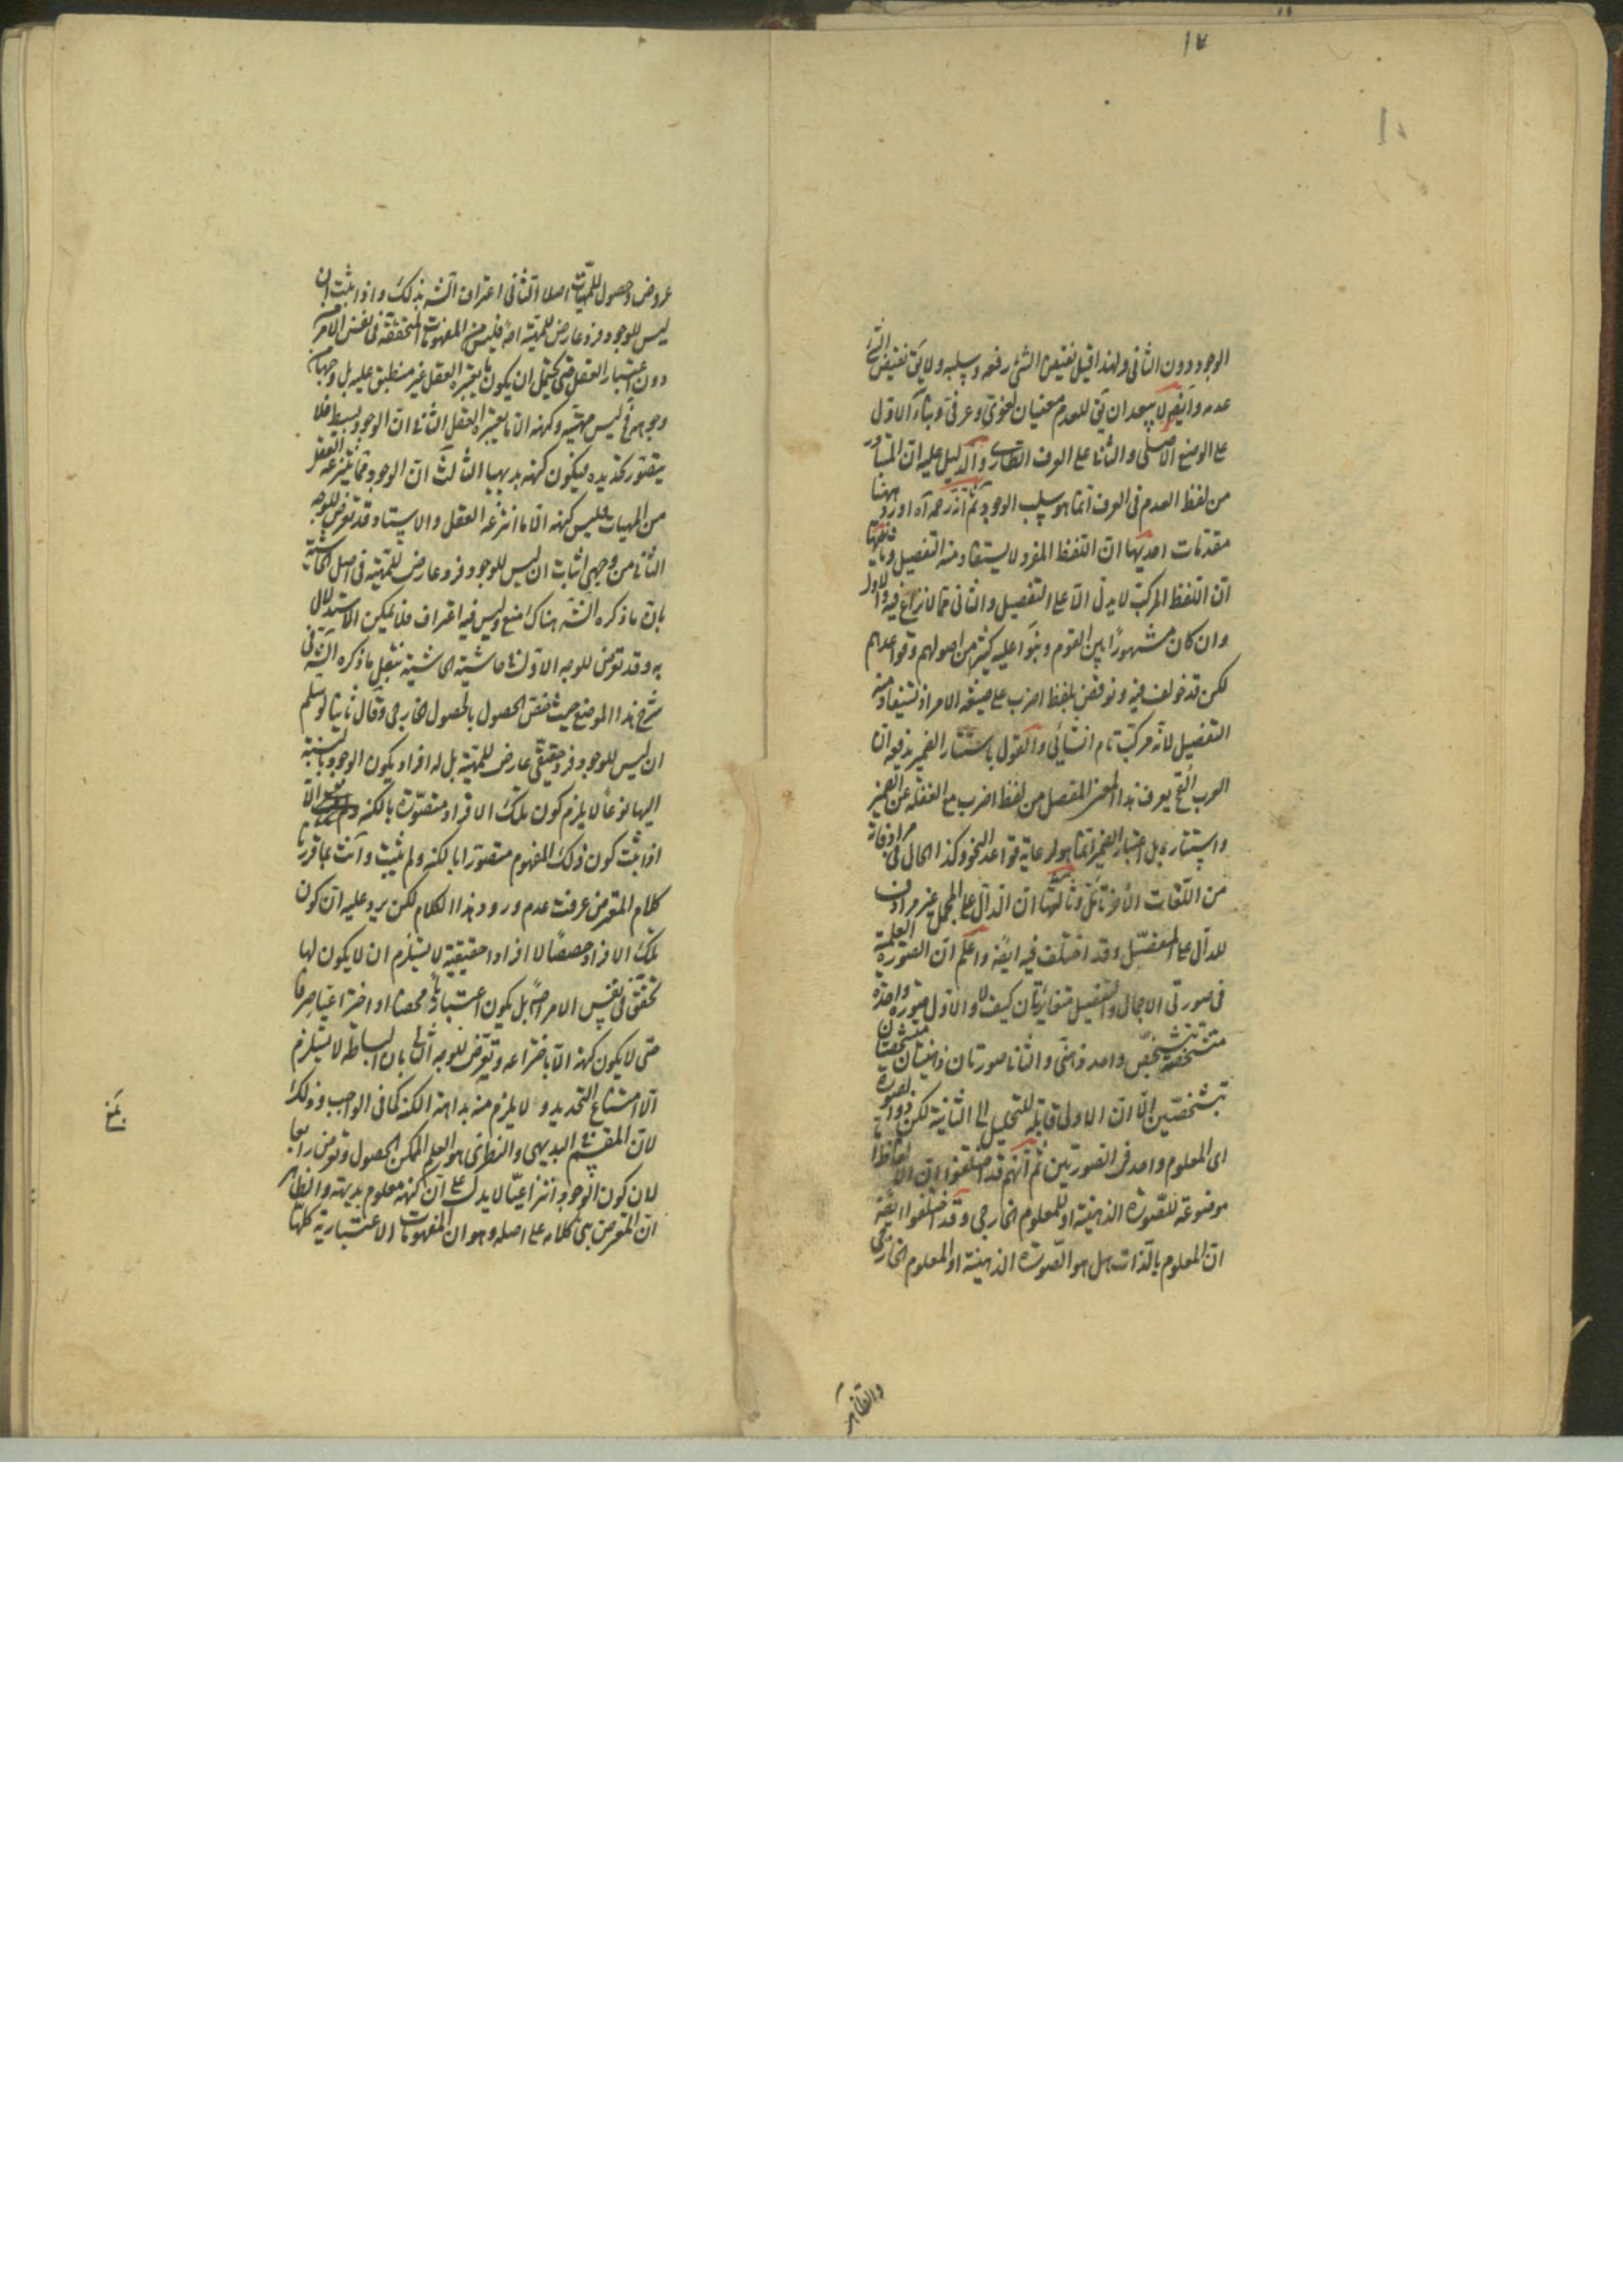 ١٧
الوجود دون الثانى ولهذا قيل نقيض الشئ رفعه وسلبه ولا يق نقيض الشئ
عدمه وايضا لا يبعد ان يق للعدم معنيان لغوى وعرفى وبناء الاول
على الوضع الاصلى والثانى على العرف الطارى والدليل عليه ان المتبادر
من لفظ العدم فى العرف انما هو سلب الوجود ثم انه رحمه اورد ههنا
مقدمات احديها ان اللفظ المفرد لا يستفاد منه التفصيل وثانيها
ان اللفظ المركب لا يدل الا على التفصيل والثانى مما لا نزاع فيه والاول
وان كان مشهورا بين القوم وبنوا عليه كثيرا من اصولهم وقواعدهم
لكن قد خولف فيه ونوقض بلفظ اضرب على صيغة الامر اذ يستفاد منه
التفصيل لانه مركب تام انشائى والقول باستتار الضمير يدفعه ان
العرب القح يعرف هذا المعنى المفصل من لفظ اضرب مع الغفلة عن الضمير
واستتاره بل اعتبار الضمير انما هو لرعاية قواعد النحو وكذا الحال فى مرادفاته
من اللغات الاخر تأمل وثالثها ان الدال على المجمل غير مرادف
للدال على المفصل وقد اختلف فيه ايضا واعلم ان الصورة العلمية
فى صورتى الاجمال والتفصيل متغايرتان كيف لا والاول صورة واحدة
متشخصة بتشخص واحد ذهنى والثانى صورتان ذهنيتان متشخصتان
بتشخصين الا ان الاولى قابلة للتحليل الى الثانية لكن ذو الصورة
اى المعلوم واحد فى الصورتين ثم انهم قد اختلفوا ان الالفاظ
موضوعة للصورة الذهنية او للمعلوم الخارجى وقد اختلفوا ايضا
ان المعلوم بالذات هل هو الصورة الذهنية او المعلوم الخارجى
والظاهر
عروض وحصول للمهيات اصلا الثانى اعتراف الشه بذلك واذا ثبت ان
ليس للوجود فرد عارض للمهية اصلا فليس من المفهومات المتحققة فى نفس الامر
دون اعتبار العقل حتى يحتمل ان يكون ما يعتبره العقل غير منطبق عليه بل وجها من
وجوهه فح ليس مهيته وكنهه الا ما يعتبره العقل الثانى ان الوجود بسيط فلا
يتصور تحديده فيكون كنهه بديهيا الثالث ان الوجود مما ينتزعه العقل
من المهيات فليس كنهه الا ما انتزعه العقل والاستاد قد تعرض للوجه
الثانى من وجهى اثبات ان ليس للوجود فرد عارض للمهية فى اصل الحاشية
بان ما ذكره الشه هناك منع وليس فيه اعتراف فلا يمكن الاستدلال
به وقد تعرض للوجه الاول فى حاشية الحاشية بنقل ما ذكره الشه فى
شرح هذا الموضع حيث خص الحصول بالحصول الخارجى وقال ثانيا لو سلم
ان ليس للوجود فرد حقيقى عارض للمهية بل له افراد يكون الوجود بالنسبة
اليها نوعا لا يلزم كون تلك الافراد متصورة بالكنه الا
اذا ثبت كون ذلك المفهوم متصورا بالكنه ولم يثبت وانت بما قررنا
كلام المتعرض عرفت عدم ورود هذا الكلام لكن يرد عليه ان كون
تلك الافراد حصصا لا افرادا حقيقية لا يستلزم ان لا يكون لها
تحقق فى نفس الامر اصلا بل يكون اعتباريا محضا او اختراعيا صرفا
حتى لا يكون كنهه الا باختراعه وتعرض للوجه الثانى بان البساطة لا يستلزم
الا امتناع التحديد ولا يلزم منه بداهة الكنه كما فى الواجب وذلك
لان المقسم البديهى والنظرى هو العلم الممكن الحصول وتعرض رابعا
لان كون الوجود انتزاعيا لا يدل على ان كنهه معلوم بديهة والظاهر
ان المتعرض بنى كلامه على اصله وهو ان المفهومات الاعتبارية كلها
بلغ